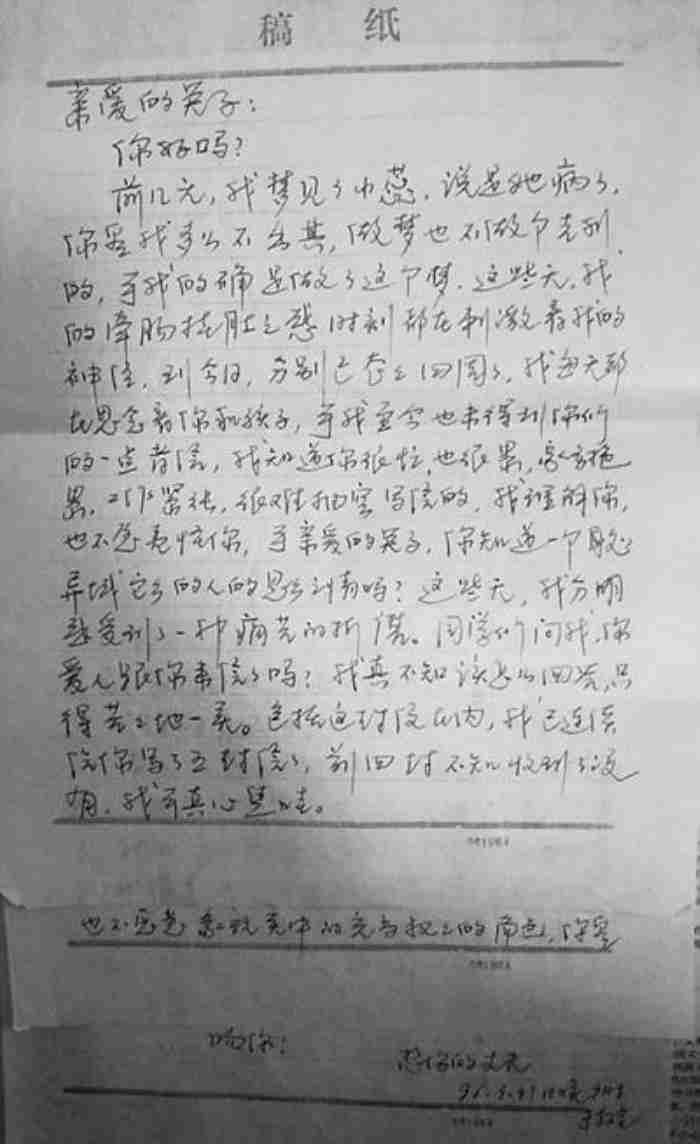 稿 纸
亲爱的英子：
你好吗？
前几天，我梦见了小蕊，说是她病了，
你看我多么不 ，做梦也不做个吉利
的，可我的确是做了这个梦。这些天，我
的牵肠挂肚之愁时刻都在刺激着我的
神经，到今日，分别已 四周了，我每天都
在思念着你和孩子，可我至今也未得到你们
的一点音信，我知道你很忙，也很累，
累，工作紧张，很难抽空写信的，我理解你，
也不愿责怪你，可亲爱的英子，你知道一个身处
异域 的人的 吗？这些天，我分明
感受到了一种痛苦的折磨。同学们问我，你
爱人跟你来信了吗？我真不知该怎么回答，只
得苦苦地一笑。包括这封信在内，我已连续
给你写了五封信了，前四封不知收到了没
有，我可真心 。
也不愿 的角色，你看
吻你！
想你的丈夫